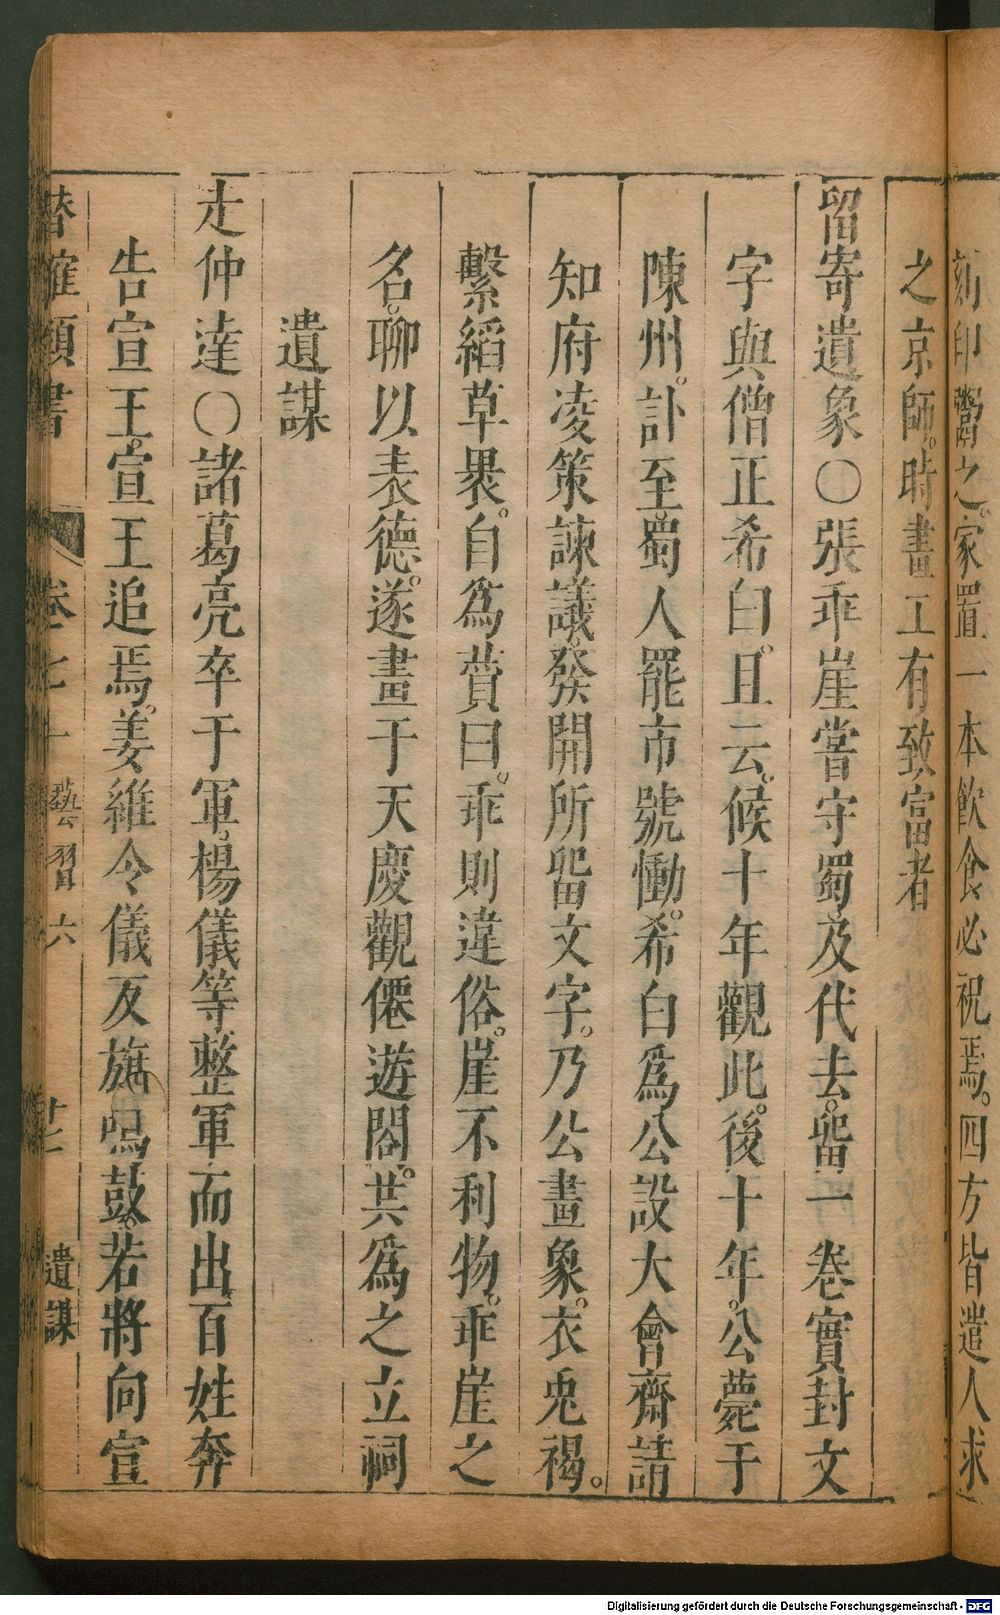 刻印鬻之。家置一本飲食必祝焉。四方皆遣人求
之京師。時畫工有致富者
留寄遺象〇張乖崖嘗守蜀及代去。畱一卷實封文
字與僧正希白。且云。候十年觀此。後十年。公薨于
陳州。訃至。蜀人罷市號慟。希白爲公設大會齋請
知府凌策諫議。發開所畱文字。乃公畫象。衣兎褐。
繫縚草褁。自爲贊曰。乖則違俗。崖不利物。乖崖之
名。聊以表德。遂畫于天慶觀僊遊閣。共爲之立祠
遺謀
走仲達〇諸葛亮卒于軍。楊儀等整軍而出百姓奔
告宣王。宣王追焉。姜維令儀反旗鳴鼓。若將向宣
卷七十 藝習六 廿七 遺謀
Digitalisierung gefördert durch die Deutsche Forschungsgemeinschaft - DFG